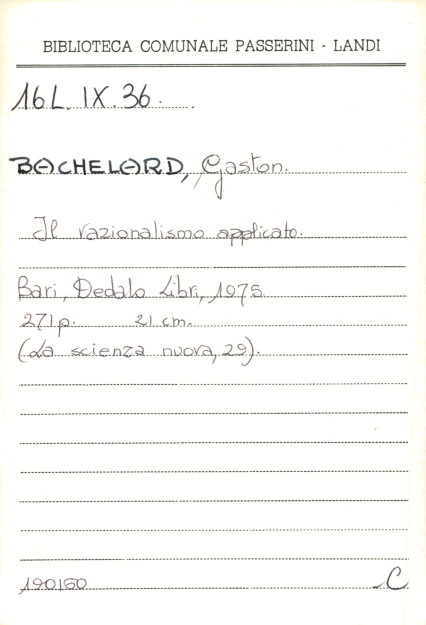 BIBLIOTECA COMUNALE PASSERINI - LANDI
16L. IX. 36.
BACHELARD, Gaston.
Il razionalismo applicato.
Bari, Dedalo Libri, 1975.
271 p. 21 cm.
(La scienza nuova, 29).
190150 C